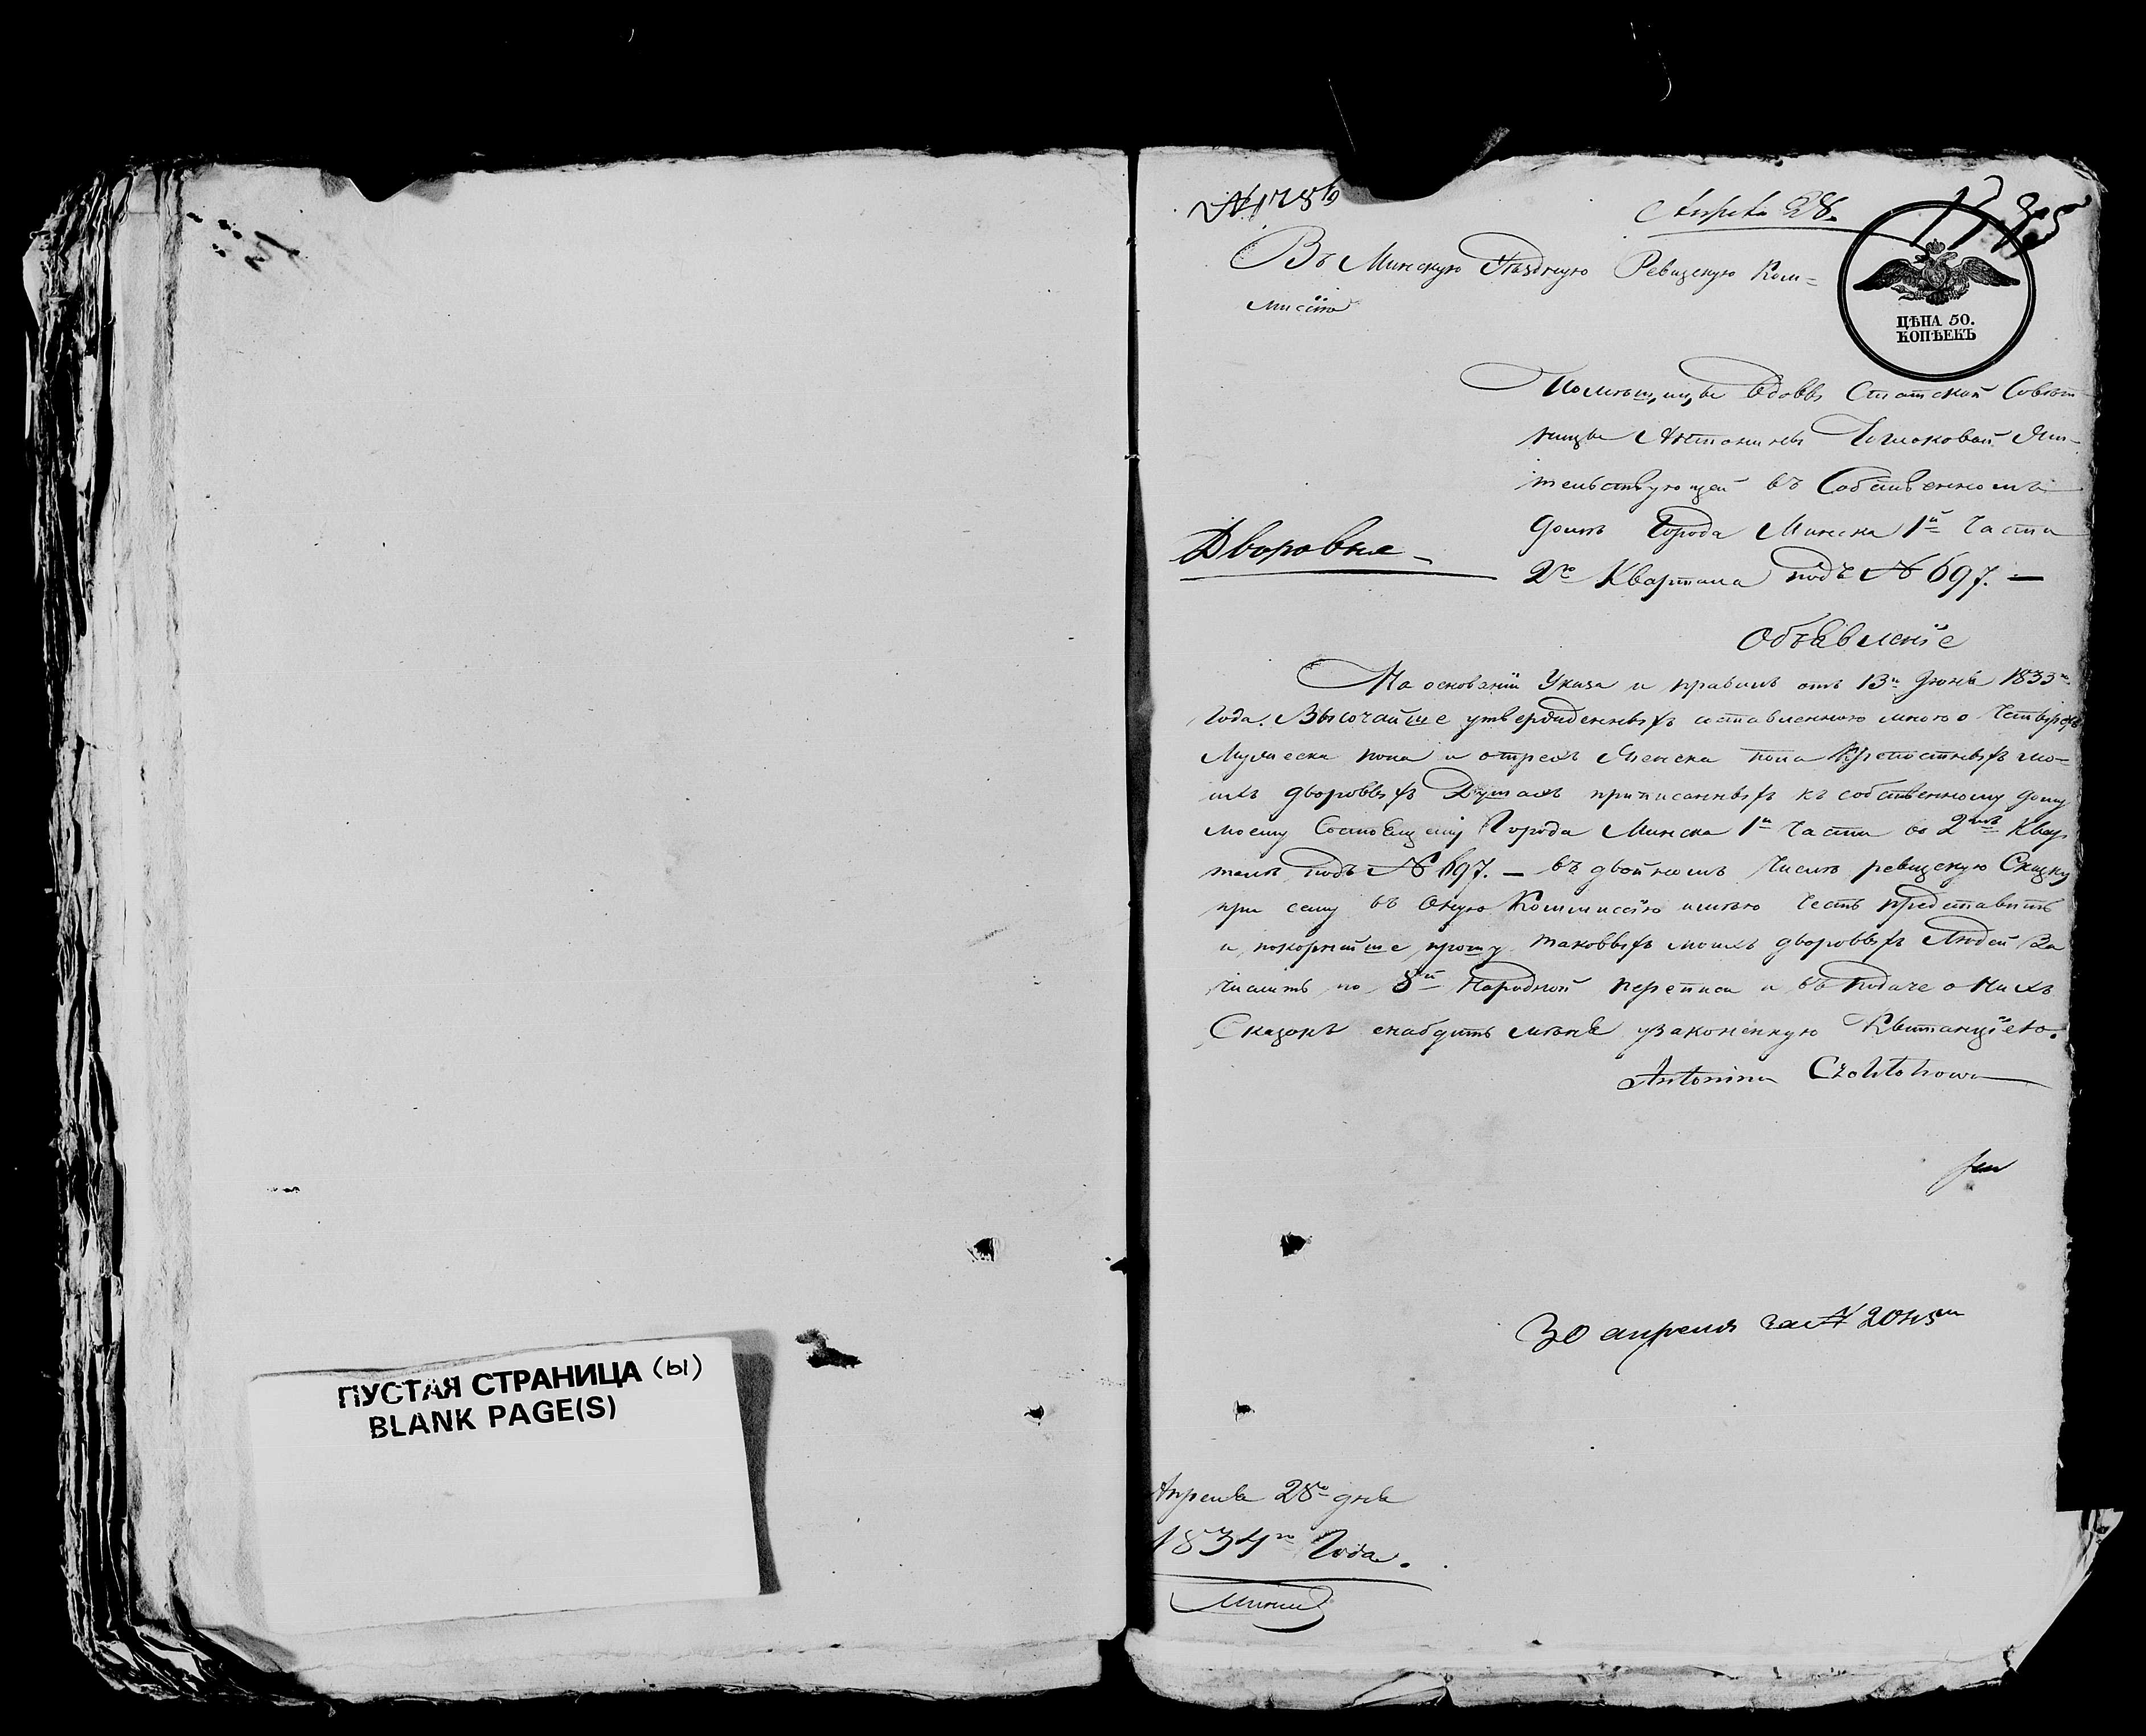 ПУСТАЯ СТРАНИЦА (ы)
BLANK PAGE(S)
Апреля 28.
Въ Минскую Уѣздную Ревизскую Ком=
мисію
ЦѢНА 50.
КОПѢЕКЪ
Помѣщицы вдовы Статской Совѣт
ницы Антонины Жи-
тельствующей въ Собственномъ
Домѣ Города Минска 1й Части
2го Квартала подъ № 697. —
Дворовые
Объявленіе
На основаніи Указа и правилъ отъ 13го Іюня 1833го
Года. Высочайше утвержденныхъ составленною мною о четырехъ
Мужеска пола и о трехъ Женска пола Крепостныхъ мо-
ихъ дворовыхъ Душахъ приписанныхъ къ собственному дому
моему Состоящему Города Минска 1й Части во 2мъ Квар
талѣ подъ № 697. — въ двойномъ числѣ ревизскую Сказку
при семъ въ Оную Коммиссію имѣю честь представить
и покорнѣйше прошу таковыхъ моихъ дворовыхъ Людей За
числить по 8й Народной переписи и въ подаче о нихъ
Сказокъ снабдить мѣня узаконенную Квитанціею.
Antonina
30 апреля за №
Апреля 28го дня
1834го Года.
Минскъ